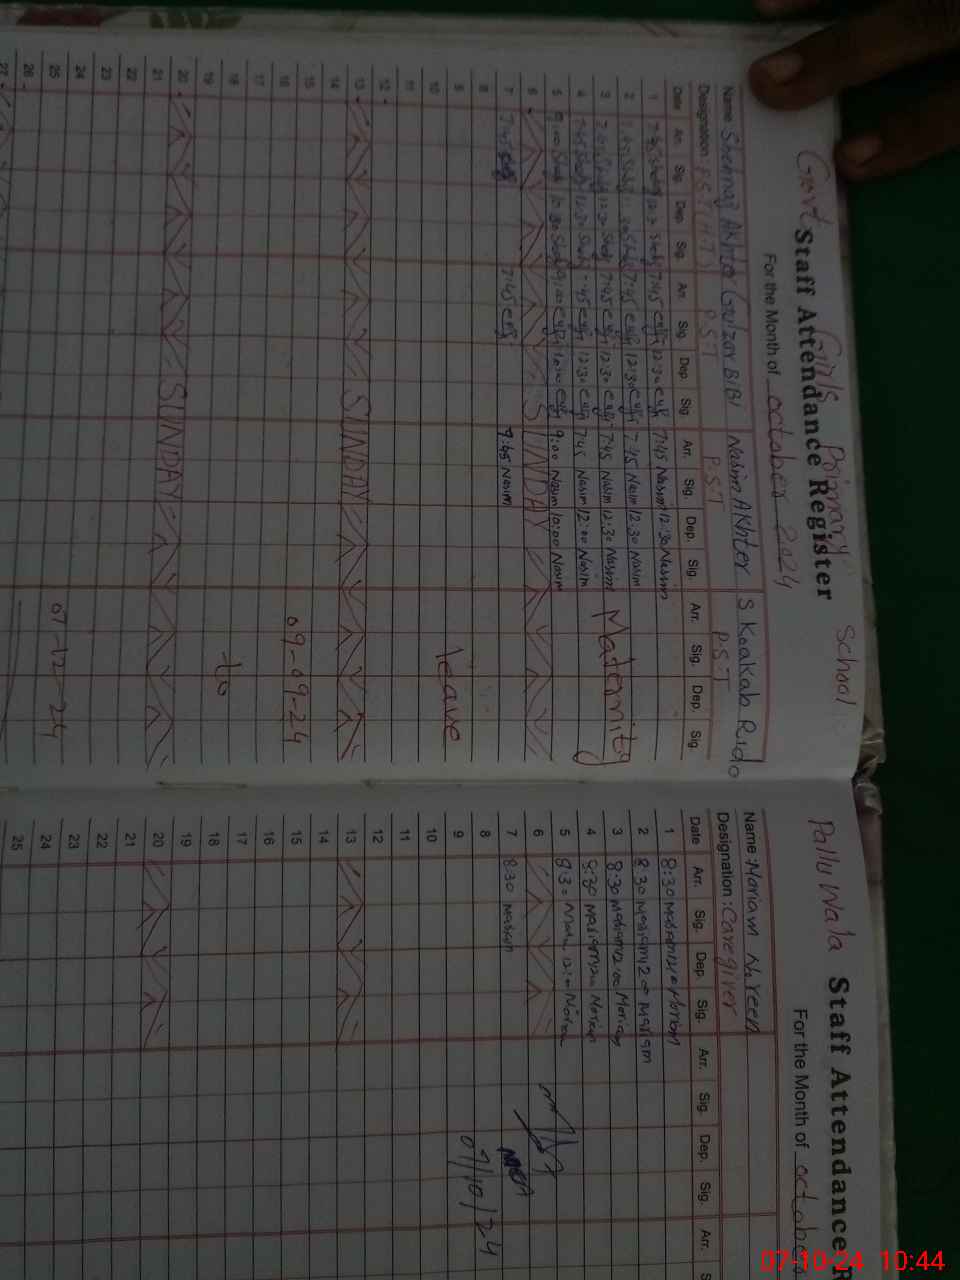 Govt Girls Primary School
Staff Attendance Register
For the Month of october 2024
Name Shehnaz Akhter Gulzar BiBi Nasim Akhter S Koakab Rida
Designation PST (HT) P.S.T P.S.T P.S.T
Date Arr. Sig. Dep. Sig. Arr. Sig. Dep. Sig. Arr. Sig. Dep. Sig. Arr. Sig. Dep. Sig.
1 7:45 12:30 7:45 Nasim 12:30 Nasim
2 7:45 12:30 7:45 Nasim 12:30 Nasim
3 7:45 12:30 7:45 Nasim 12:30 Nasim Maternity
4 7:45 12:30 7:45 Nasim 12:00 Nasim
5 9:00 9:00 Nasim 10:00 Nasim
6 SUNDAY
7 7:45 7:45 7:45 Nasim
8
9 leave
10
11
12
13 SUNDAY
14
15 09-09-24
16
17
18 to
19
20 SUNDAY
21
22
23
24
25 07-12-24
26
27
Pallu Wala Staff Attendance R
For the Month of october
Name: Mariam Noreen
Designation: Caregiver
Date Arr. Sig. Dep. Sig. Arr. Sig. Dep. Sig. Arr.
1 8:30 Mariam 12:00 Mariam
2 8:30 Mariam 12:00 Mariam
3 8:30 Mariam 12:00 Mariam
4 8:30 Mariam 12:00 Mariam
5 8:30 Mariam 12:00 Mariam
6
7 8:30 Mariam
8
9 07/10/24
10
11
12
13
14
15
16
17
18
19
20
21
22
23
24
25
07-10-24 10:44